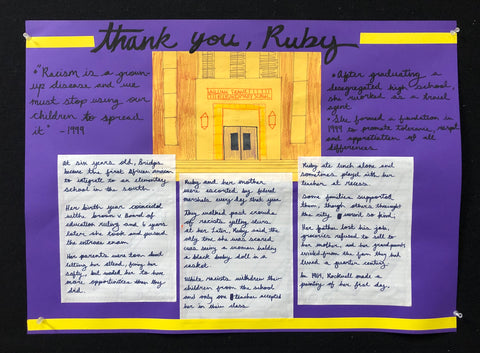 thank you, Ruby
• "Racism is a grown-
up disease and we
must stop using our
children to spread
it" - 1999
WILLIAM FRANTZ
• After graduating a
desegregated high school,
she worked as a travel
agent
• She formed a foundation in
1999 to promote tolerance, respect
and appreciation of all
differences.
At six years old, Bridges
became the first African American
to integrate to an elementary
school in the south.
Her birth year coincided
with Brown v Board of
education ruling and 6 years
later she took and passed
the entrance exam
Her parents were torn about
letting her attend, fearing her
safety but wanted her to have
more opportunities than they
did.
Ruby and her mother
were escorted by federal
marshals every day that year.
They walked past crowds
of racists yelling slurs
at her. Later, Ruby said the
only time she was scared
was seeing a woman holding
a black baby doll in a
casket.
White racists withdrew their
children from the school
and only one teacher accepted
her in their class
Ruby ate lunch alone and
sometimes played with her
teacher at recess.
Some families supported
them, though others throughout
the city weren't so kind.
Her father lost his job,
groceries refused to sell to
her mother, and her grandparents
evicted from the farm they had
lived a quarter century.
In 1964, Rockwell made a
painting of her first day.